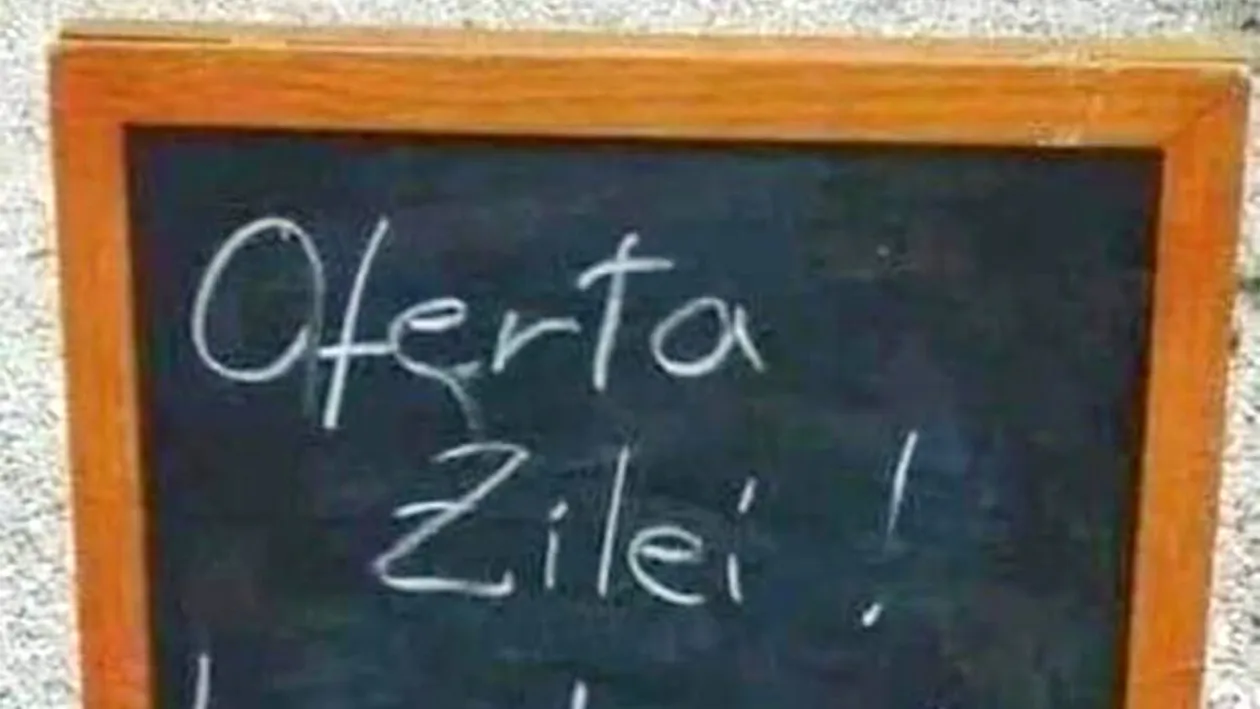 Oferta
Zilei !